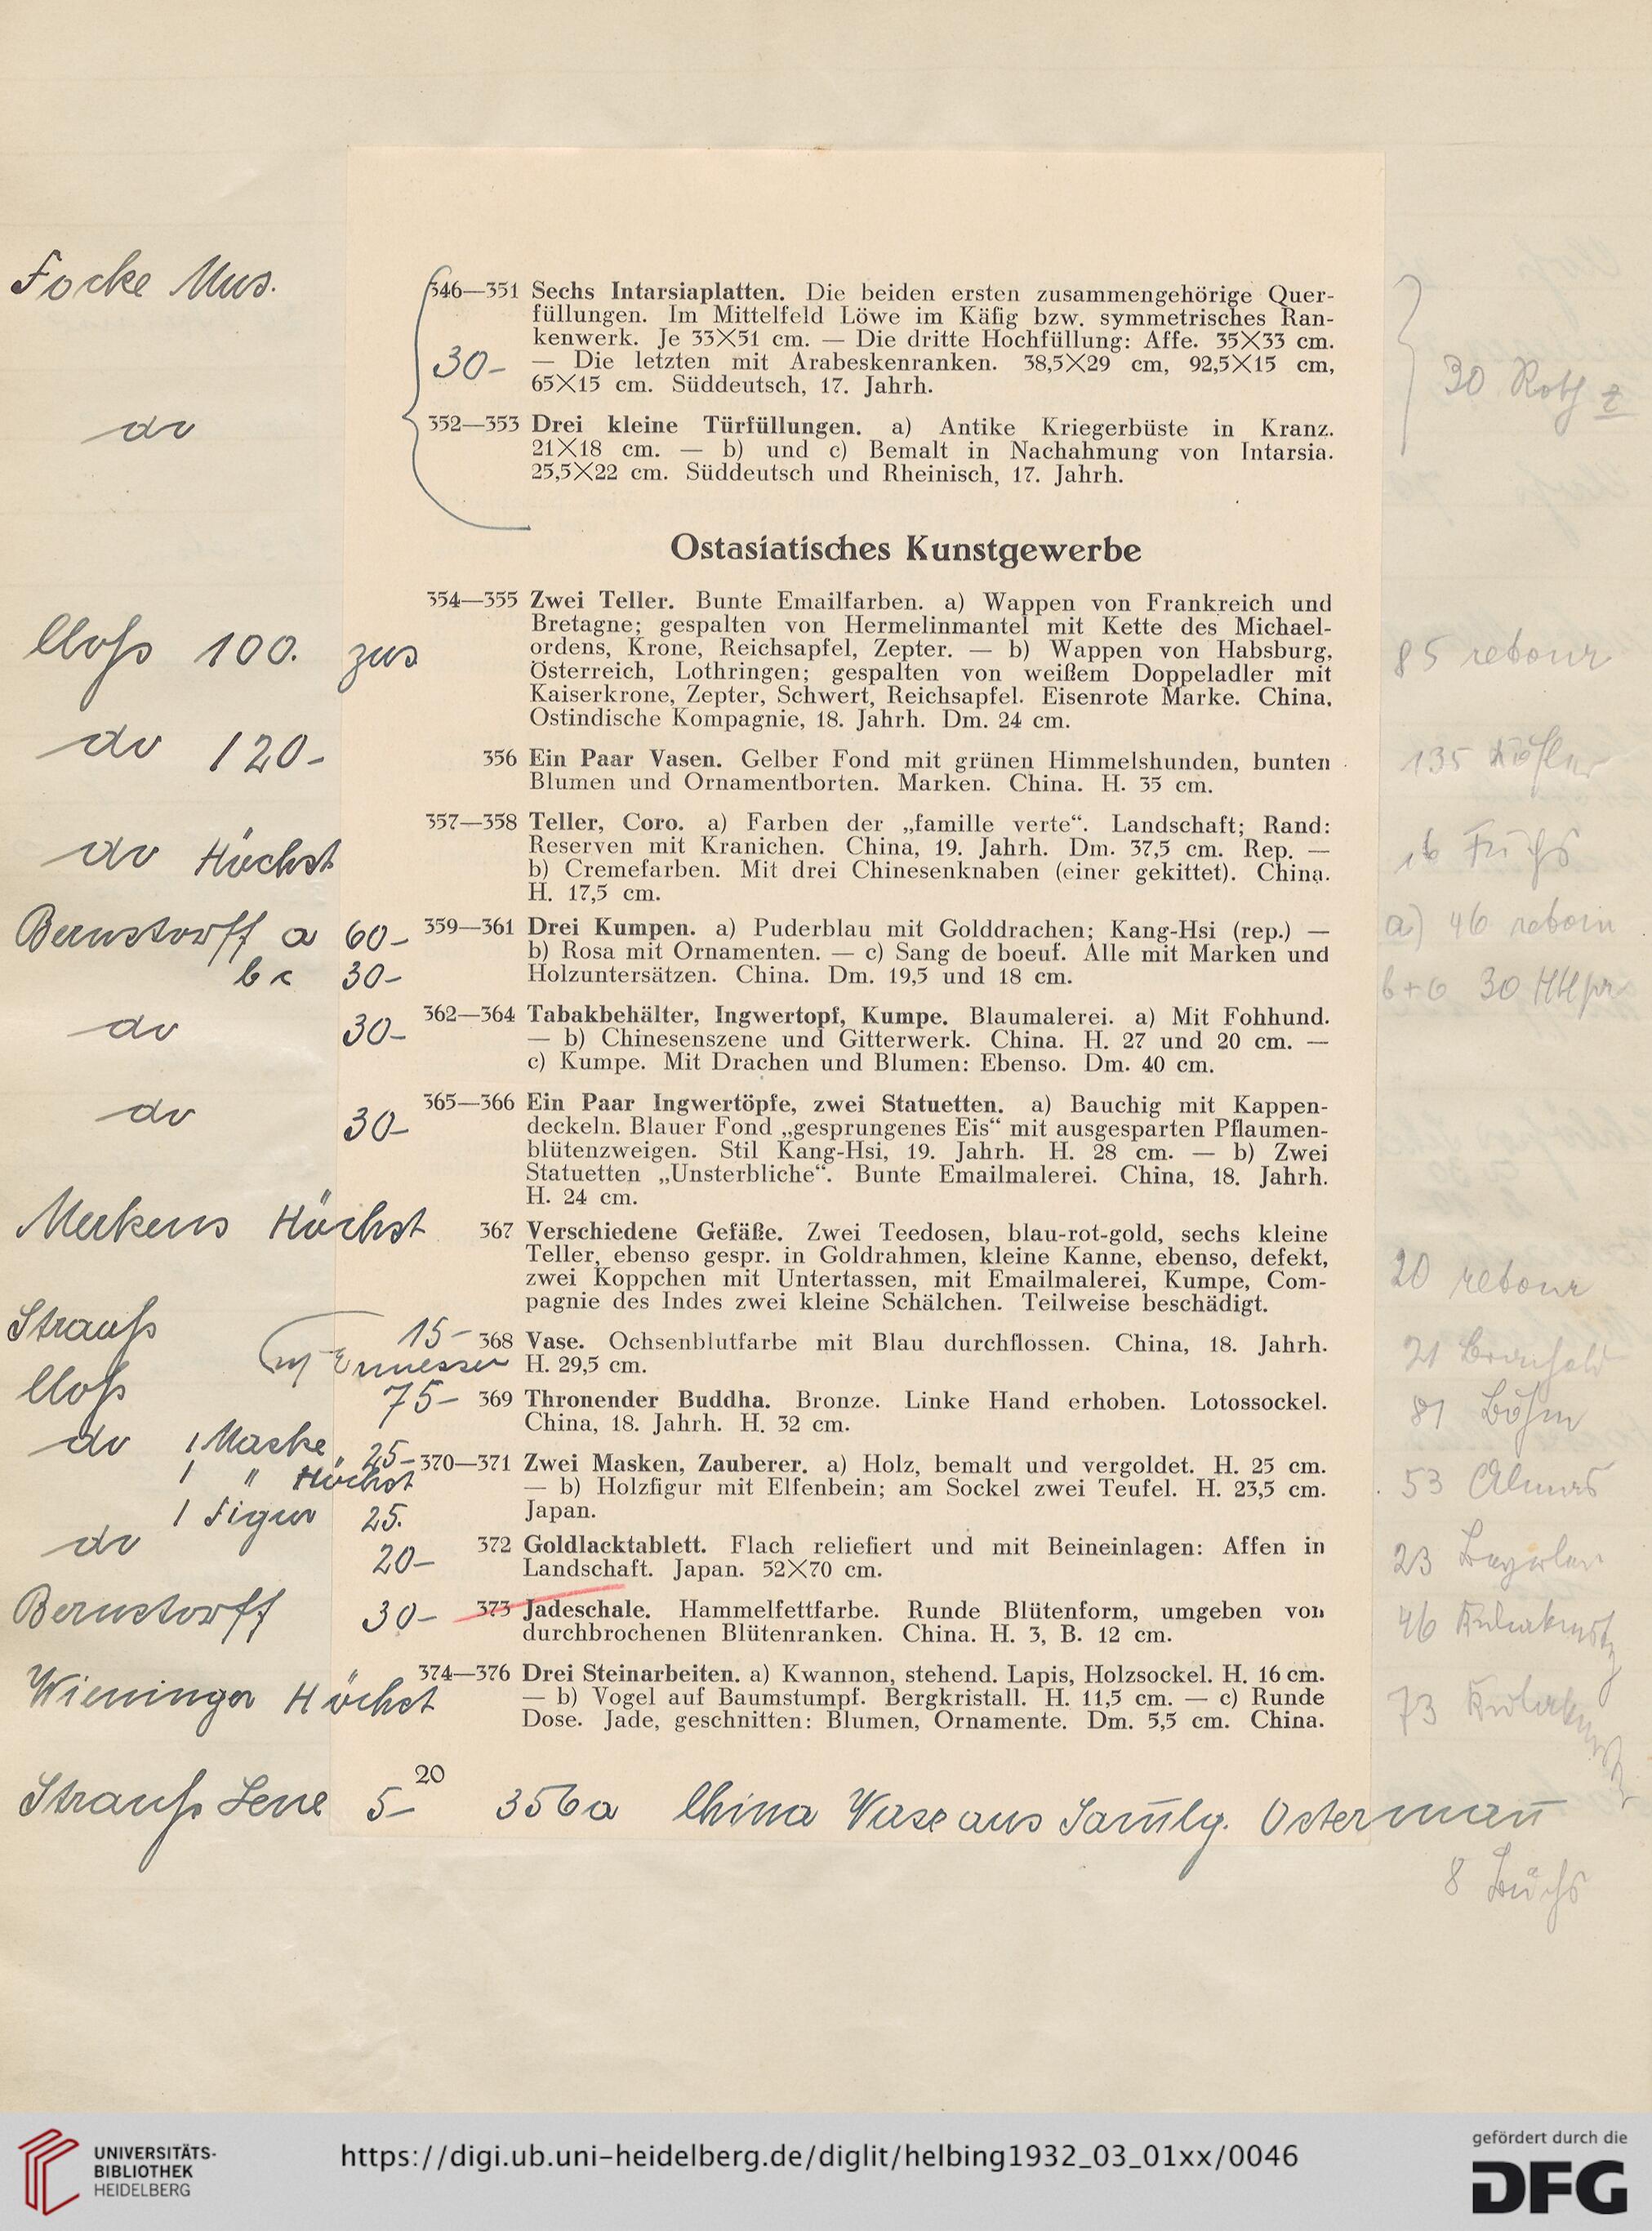 Focke Mus.
346—351 Sechs Intarsiaplatten. Die beiden ersten zusammengehörige Quer-
füllungen. Im Mittelfeld Löwe im Käfig bzw. symmetrisches Ran-
kenwerk. Je 33×51 cm. — Die dritte Hochfüllung: Affe. 35×33 cm.
30- — Die letzten mit Arabeskenranken. 38,5×29 cm, 92,5×15 cm,
65×15 cm. Süddeutsch, 17. Jahrh.
30 Roth
do
352—353 Drei kleine Türfüllungen. a) Antike Kriegerbüste in Kranz.
21×18 cm. — b) und c) Bemalt in Nachahmung von Intarsia.
25,5×22 cm. Süddeutsch und Rheinisch, 17. Jahrh.
Ostasiatisches Kunstgewerbe
354—355 Zwei Teller. Bunte Emailfarben. a) Wappen von Frankreich und
Bretagne; gespalten von Hermelinmantel mit Kette des Michael-
Cloß 100. zus ordens, Krone, Reichsapfel, Zepter. — b) Wappen von Habsburg, 85 retour
Österreich, Lothringen; gespalten von weißem Doppeladler mit
Kaiserkrone, Zepter, Schwert, Reichsapfel. Eisenrote Marke. China,
Ostindische Kompagnie, 18. Jahrh. Dm. 24 cm.
do 120- 356 Ein Paar Vasen. Gelber Fond mit grünen Himmelshunden, bunten 135
Blumen und Ornamentborten. Marken. China. H. 35 cm.
357—358 Teller, Coro. a) Farben der „famille verte“. Landschaft; Rand:
do Höchst Reserven mit Kranichen. China, 19. Jahrh. Dm. 37,5 cm. Rep. — 16
b) Cremefarben. Mit drei Chinesenknaben (einer gekittet). China.
H. 17,5 cm.
Bernstorff a 60- 359—361 Drei Kumpen. a) Puderblau mit Golddrachen; Kang-Hsi (rep.) — a) 46
b) Rosa mit Ornamenten. — c) Sang de boeuf. Alle mit Marken und
b c 30- Holzuntersätzen. China. Dm. 19,5 und 18 cm. 30
do 30- 362—364 Tabakbehälter, Ingwertopf, Kumpe. Blaumalerei. a) Mit Fohhund.
— b) Chinesenszene und Gitterwerk. China. H. 27 und 20 cm. —
c) Kumpe. Mit Drachen und Blumen: Ebenso. Dm. 40 cm.
do 30- 365—366 Ein Paar Ingwertöpfe, zwei Statuetten. a) Bauchig mit Kappen-
deckeln. Blauer Fond „gesprungenes Eis“ mit ausgesparten Pflaumen-
blütenzweigen. Stil Kang-Hsi, 19. Jahrh. H. 28 cm. — b) Zwei
Statuetten „Unsterbliche“. Bunte Emailmalerei. China, 18. Jahrh.
H. 24 cm.
Merkens Höchst 367 Verschiedene Gefäße. Zwei Teedosen, blau-rot-gold, sechs kleine
Teller, ebenso gespr. in Goldrahmen, kleine Kanne, ebenso, defekt, 20 retour
zwei Koppchen mit Untertassen, mit Emailmalerei, Kumpe, Com-
pagnie des Indes zwei kleine Schälchen. Teilweise beschädigt.
Strauß 15- 368 Vase. Ochsenblutfarbe mit Blau durchflossen. China, 18. Jahrh. 21
Ermessen H. 29,5 cm.
Cloß 75- 369 Thronender Buddha. Bronze. Linke Hand erhoben. Lotossockel. 81 Böhm
China, 18. Jahrh. H. 32 cm.
do 1 Maske 25- 370—371 Zwei Masken, Zauberer. a) Holz, bemalt und vergoldet. H. 25 cm.
1 " Höchst — b) Holzfigur mit Elfenbein; am Sockel zwei Teufel. H. 23,5 cm. 53
1 Figur 25. Japan.
do 20- 372 Goldlacktablett. Flach reliefiert und mit Beineinlagen: Affen in 23
Landschaft. Japan. 52×70 cm.
Bernstorff 30- 373 Jadeschale. Hammelfettfarbe. Runde Blütenform, umgeben von 46
durchbrochenen Blütenranken. China. H. 3, B. 12 cm.
Wieninger Höchst 374—376 Drei Steinarbeiten. a) Kwannon, stehend. Lapis, Holzsockel. H. 16 cm.
— b) Vogel auf Baumstumpf. Bergkristall. H. 11,5 cm. — c) Runde 73
Dose. Jade, geschnitten: Blumen, Ornamente. Dm. 5,5 cm. China.
20
Strauß Lene 5- 356a China Vase aus Sam̄lg. Osterman̄
8
UNIVERSITÄTS-
BIBLIOTHEK
HEIDELBERG
https://digi.ub.uni-heidelberg.de/diglit/helbing1932_03_01xx/0046
gefördert durch die
DFG